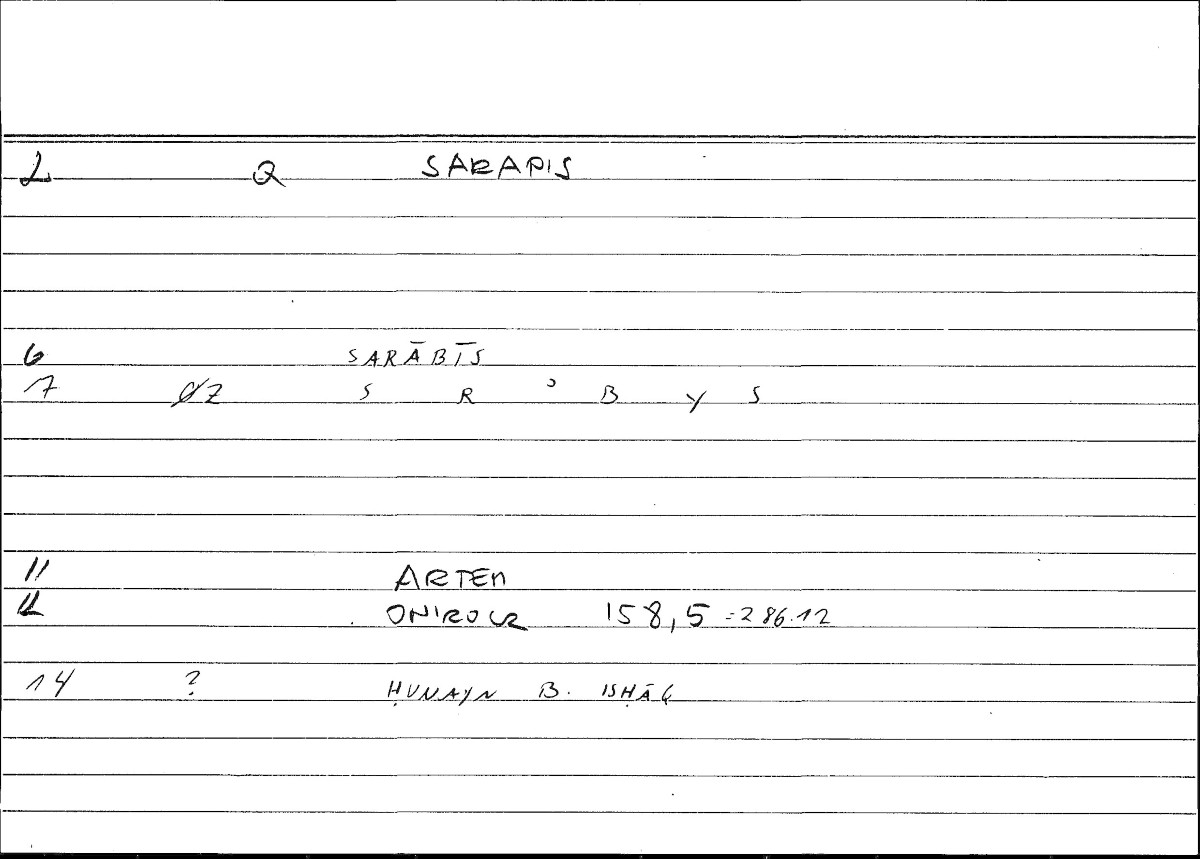 2 Q SARAPIS
6 SARĀBĪS
17 ȼZ S R ʾ B Y S
11 ARTEM
12 ONIROCR 158,5 =286.12
14 ? ḤUNAYN B. ISḤĀQ